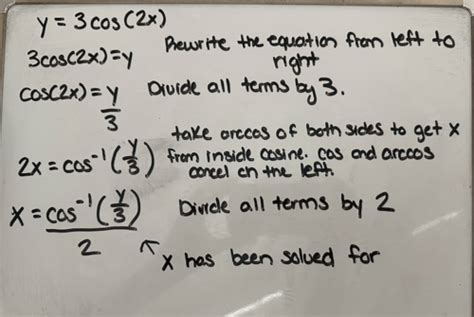 y = 3cos(2x)
3cos(2x)=y Rewrite the equation from left to right
cos(2x)= y/3 Divide all terms by 3.
take arccos of both sides to get x
2x = cos⁻¹(y/3) from inside cosine. cos and arccos
cancel on the left.
x = cos⁻¹(y/3)/2 Divide all terms by 2
x has been solved for